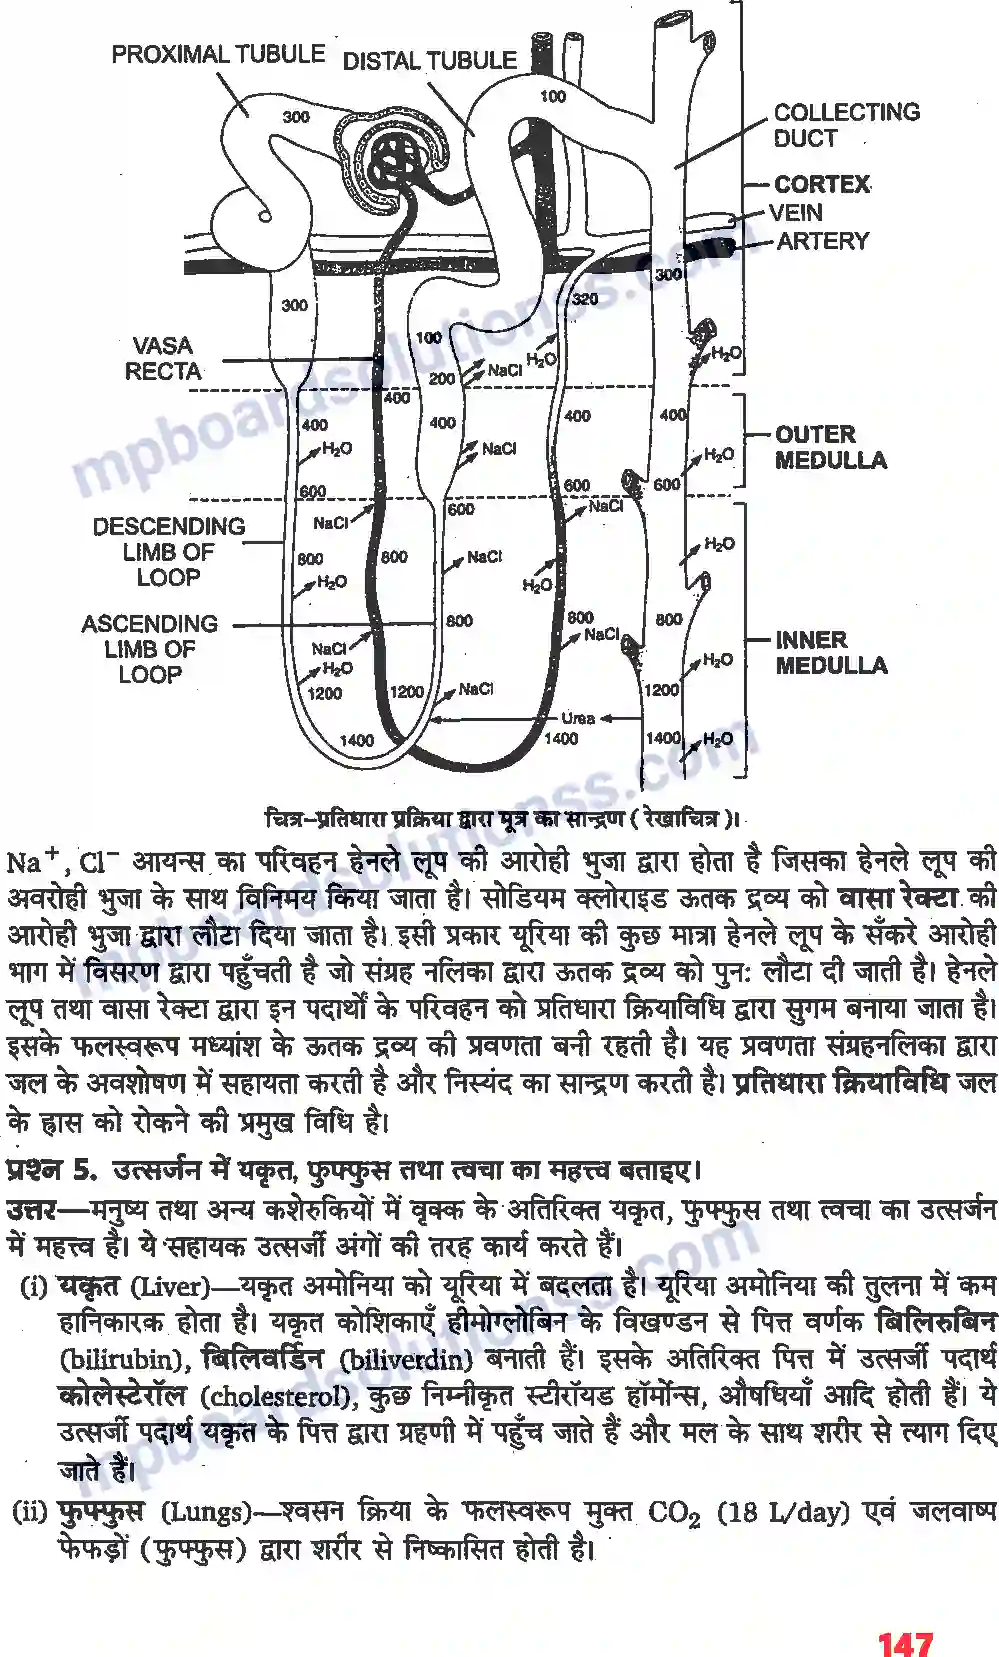 PROXIMAL TUBULE
DISTAL TUBULE
300
100
COLLECTING
DUCT
CORTEX
VEIN
ARTERY
300
300
320
100
H₂O
H₂O
VASA
RECTA
200
NaCl
400
400
400
400
400
OUTER
MEDULLA
H₂O
NaCl
H₂O
600
600
600
600
NaCl
NaCl
DESCENDING
LIMB OF
LOOP
800
800
NaCl
H₂O
H₂O
H₂O
ASCENDING
LIMB OF
LOOP
800
800
800
NaCl
NaCl
INNER
MEDULLA
H₂O
H₂O
1200
1200
NaCl
1200
Urea
1400
1400
1400
H₂O
चित्र–प्रतिधारा प्रक्रिया द्वारा मूत्र का सान्द्रण ( रेखाचित्र )।
Na⁺, Cl⁻ आयन्स का परिवहन हेनले लूप की आरोही भुजा द्वारा होता है जिसका हेनले लूप की
अवरोही भुजा के साथ विनिमय किया जाता है। सोडियम क्लोराइड ऊतक द्रव्य को वासा रेक्टा की
आरोही भुजा द्वारा लौटा दिया जाता है। इसी प्रकार यूरिया की कुछ मात्रा हेनले लूप के सँकरे आरोही
भाग में विसरण द्वारा पहुँचती है जो संग्रह नलिका द्वारा ऊतक द्रव्य को पुनः लौटा दी जाती है। हेनले
लूप तथा वासा रेक्टा द्वारा इन पदार्थों के परिवहन को प्रतिधारा क्रियाविधि द्वारा सुगम बनाया जाता है।
इसके फलस्वरूप मध्यांश के ऊतक द्रव्य की प्रवणता बनी रहती है। यह प्रवणता संग्रहनलिका द्वारा
जल के अवशोषण में सहायता करती है और निस्यंद का सान्द्रण करती है। प्रतिधारा क्रियाविधि जल
के ह्रास को रोकने की प्रमुख विधि है।
प्रश्न 5. उत्सर्जन में यकृत, फुफ्फुस तथा त्वचा का महत्त्व बताइए।
उत्तर—मनुष्य तथा अन्य कशेरुकियों में वृक्क के अतिरिक्त यकृत, फुफ्फुस तथा त्वचा का उत्सर्जन
में महत्त्व है। ये सहायक उत्सर्जी अंगों की तरह कार्य करते हैं।
(i) यकृत (Liver)—यकृत अमोनिया को यूरिया में बदलता है। यूरिया अमोनिया की तुलना में कम
हानिकारक होता है। यकृत कोशिकाएँ हीमोग्लोबिन के विखण्डन से पित्त वर्णक बिलिरुबिन
(bilirubin), बिलिवर्डिन (biliverdin) बनाती हैं। इसके अतिरिक्त पित्त में उत्सर्जी पदार्थ
कोलेस्टेरॉल (cholesterol), कुछ निम्नीकृत स्टीरॉयड हॉर्मोन्स, औषधियाँ आदि होती हैं। ये
उत्सर्जी पदार्थ यकृत के पित्त द्वारा ग्रहणी में पहुँच जाते हैं और मल के साथ शरीर से त्याग दिए
जाते हैं।
(ii) फुफ्फुस (Lungs)—श्वसन क्रिया के फलस्वरूप मुक्त CO₂ (18 L/day) एवं जलवाष्प
फेफड़ों (फुफ्फुस) द्वारा शरीर से निष्कासित होती है।
mpboardsolutionss.com
mpboardsolutionss.com
mpboardsolutionss.com
147